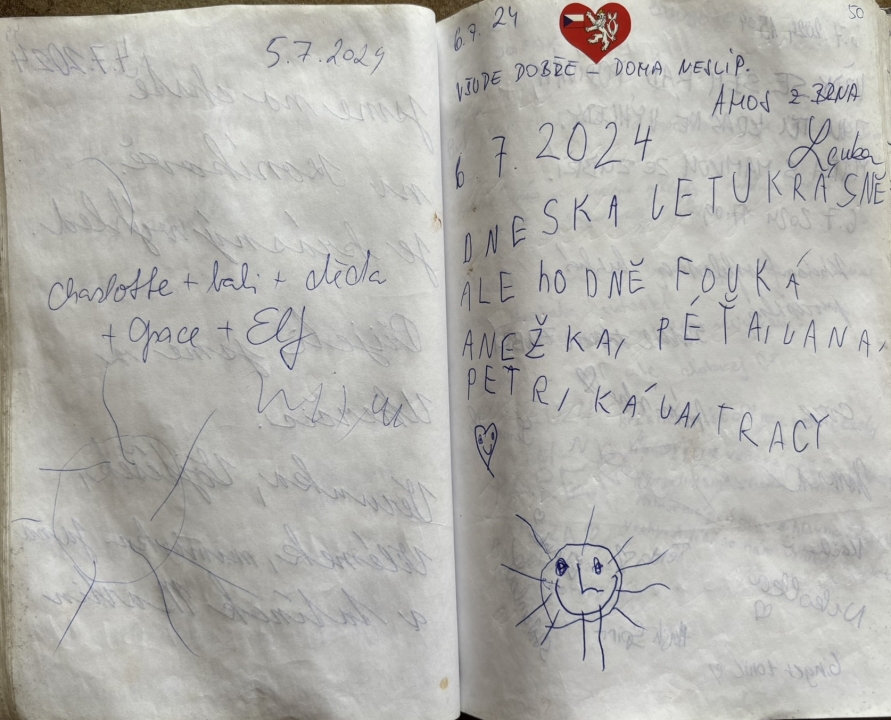 5.7.2024
charlotte + bali + děda
+ Grace + Elf
50
6.7. 24
VŠUDE DOBŘE – DOMA NESLIP.
AMOS Z BRNA
6.7.2024
Lenka
DNESKA JE TU KRÁSNĚ
ALE hODNĚ FOUKÁ
ANEŽKA, PÉŤA, JANA,
PETR, KÁJA, TRACY